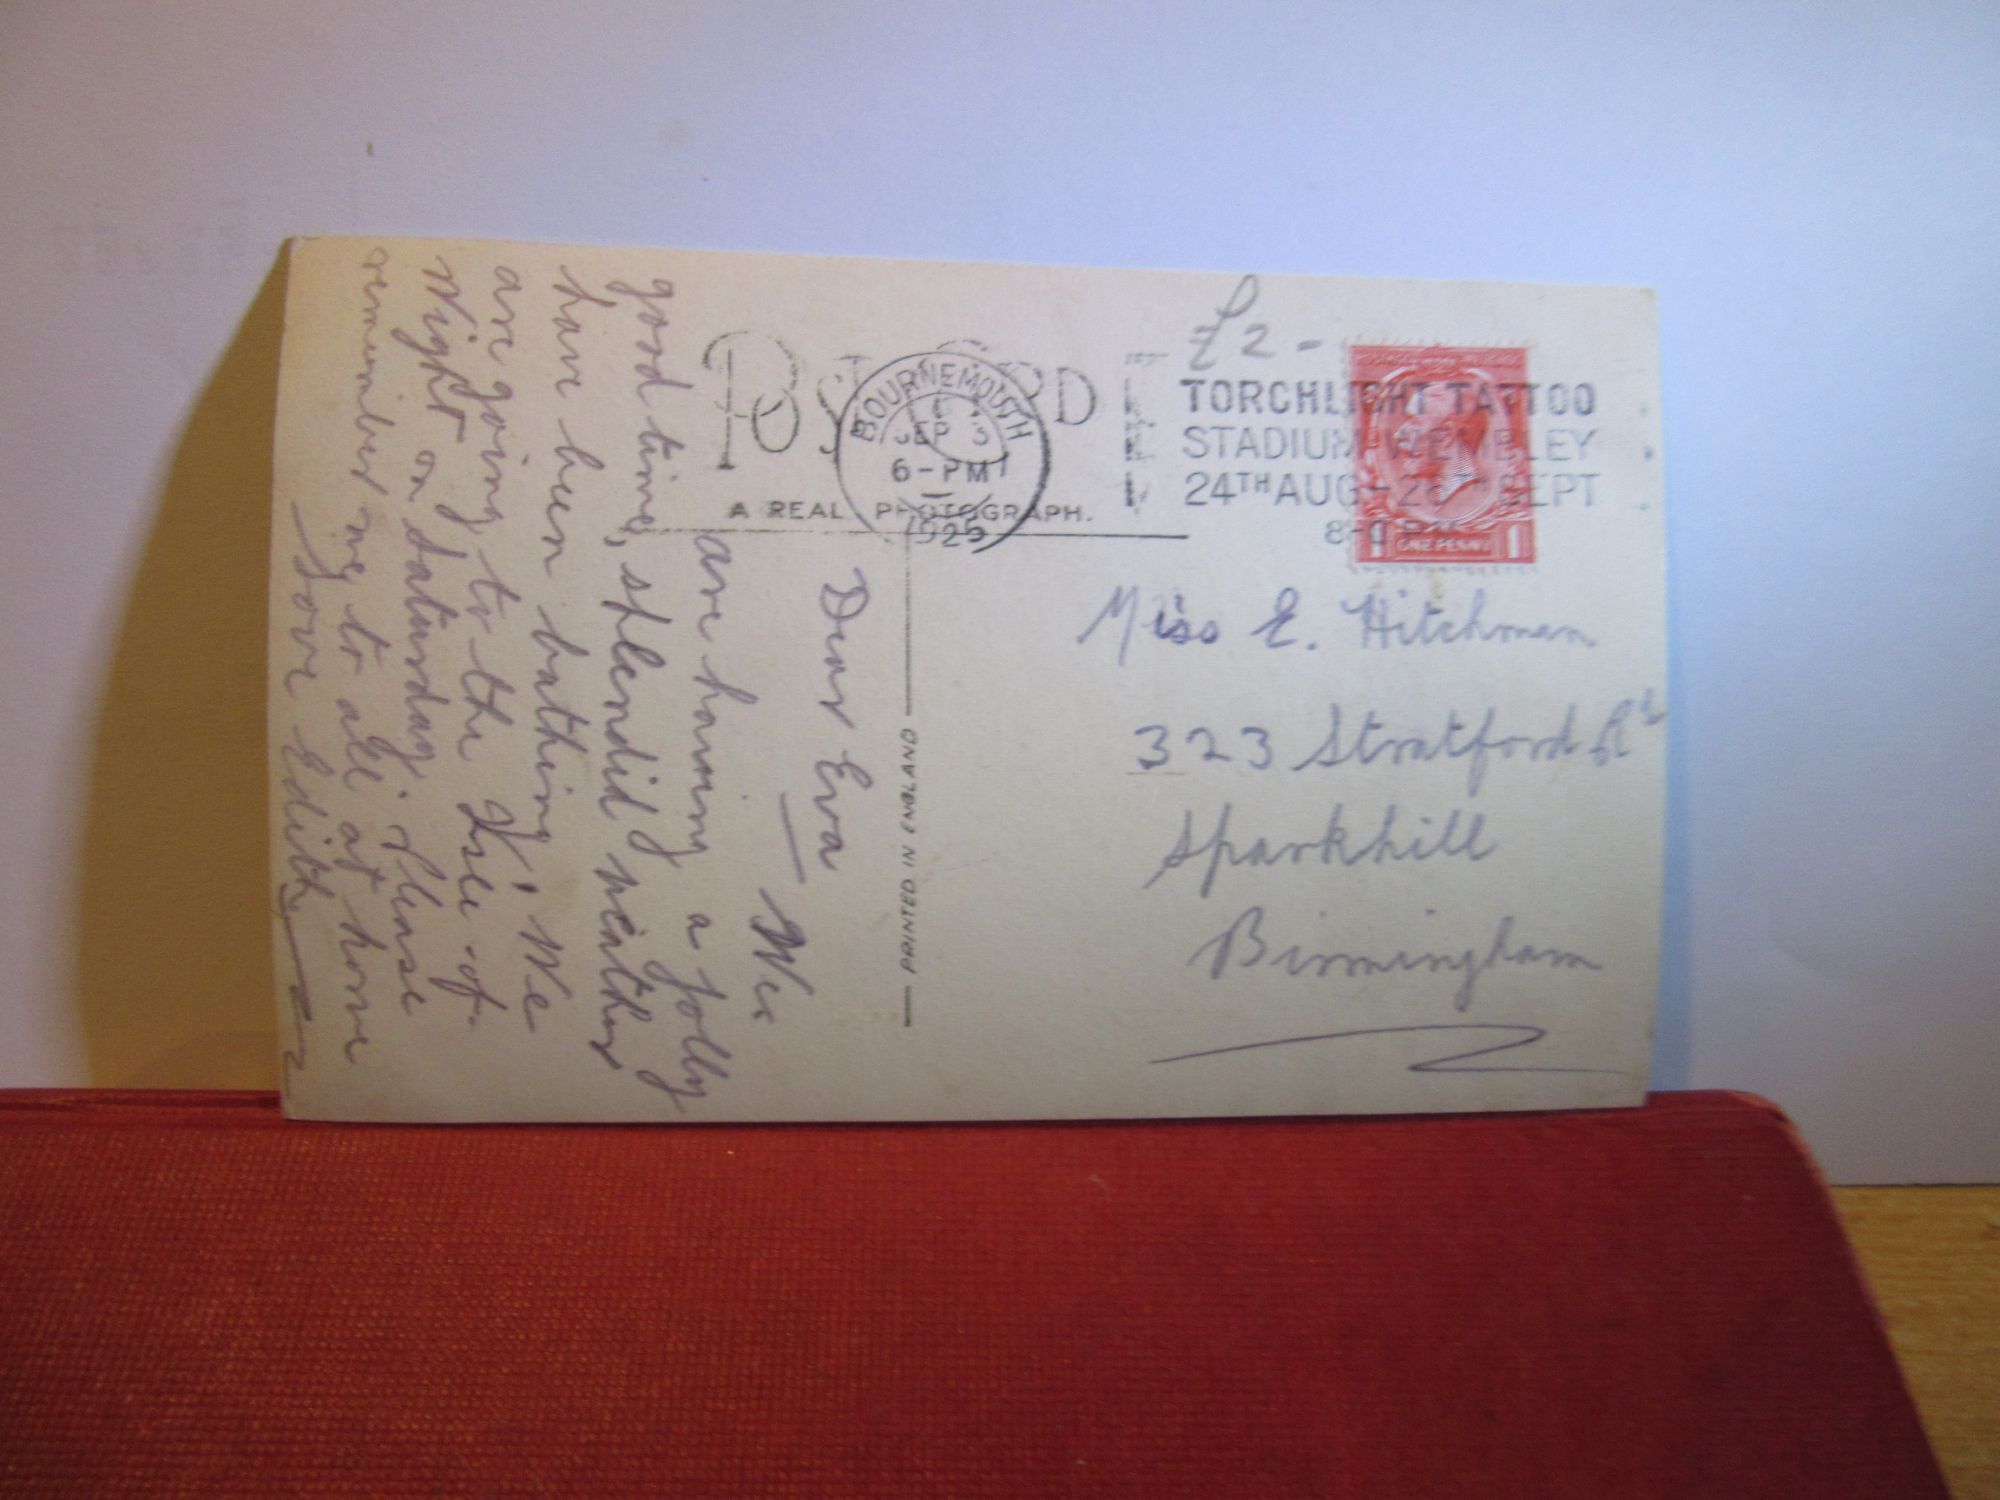 POST CARD
A REAL PHOTOGRAPH.
BOURNEMOUTH
SEP
6-PM
1925
£2-
TORCHLIGHT TATTOO
STADIUM WEMBLEY
24TH AUG- SEPT
8-0 P.M.
ONE PENNY
PRINTED IN ENGLAND
Miss E. Hitchman
323 Stratford Rd
Sparkhill
Birmingham
Dear Eva
— We
are having a jolly
good time, splendid weather
have been bathing. We
are going to the Isle-of-
Wight on Saturday. Please
remember me to all at home
Love Edith